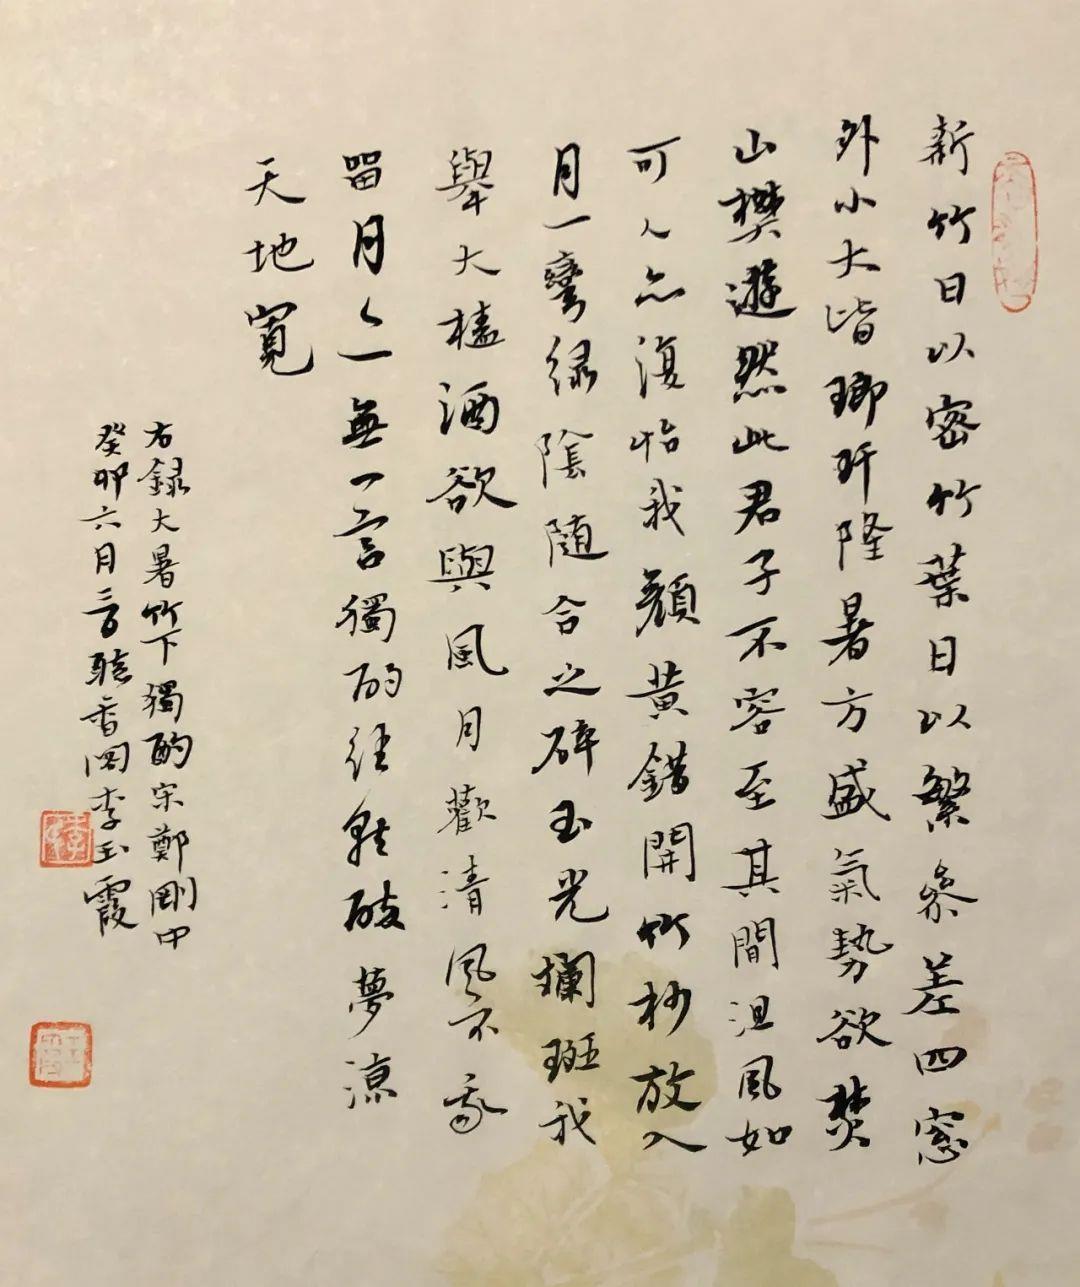 新竹日以密竹葉日以繁參差四窓
外小大皆瑯玕隆暑方盛氣勢欲焚
山樊遊然此君子不容至其間沮風如
可人亦復怡我顏黃錯開竹杪放入
月一彎緑陰随合之碎玉光斕斑我
舉大榼酒欲與風月歡清風不我
留月亦無一言獨酌徑就醉夢涼
天地寬
右錄大暑竹下獨酌宋鄭剛中
癸卯六月三日聽香閣李玉霞